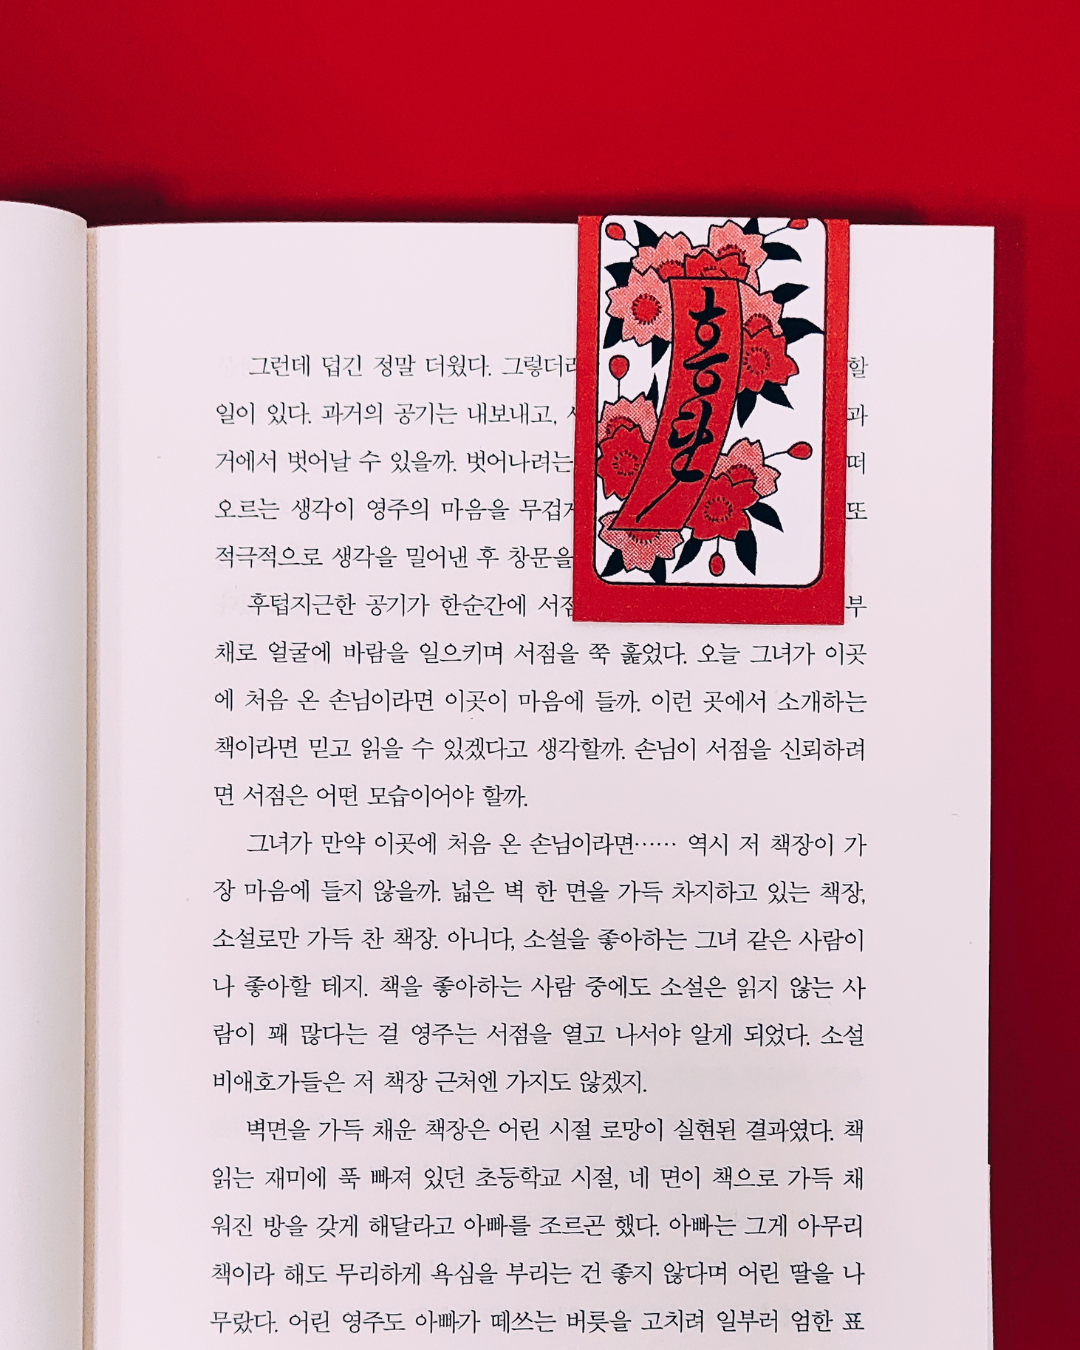 흥단
그런데 덥긴 정말 더웠다. 그렇더라 할
일이 있다. 과거의 공기는 내보내고, 과
거에서 벗어날 수 있을까. 벗어나려는 떠
오르는 생각이 영주의 마음을 무겁게 또
적극적으로 생각을 밀어낸 후 창문을
후텁지근한 공기가 한순간에 서점 부
채로 얼굴에 바람을 일으키며 서점을 쭉 훑었다. 오늘 그녀가 이곳
에 처음 온 손님이라면 이곳이 마음에 들까. 이런 곳에서 소개하는
책이라면 믿고 읽을 수 있겠다고 생각할까. 손님이 서점을 신뢰하려
면 서점은 어떤 모습이어야 할까.
그녀가 만약 이곳에 처음 온 손님이라면…… 역시 저 책장이 가
장 마음에 들지 않을까. 넓은 벽 한 면을 가득 차지하고 있는 책장,
소설로만 가득 찬 책장. 아니다, 소설을 좋아하는 그녀 같은 사람이
나 좋아할 테지. 책을 좋아하는 사람 중에도 소설은 읽지 않는 사
람이 꽤 많다는 걸 영주는 서점을 열고 나서야 알게 되었다. 소설
비애호가들은 저 책장 근처엔 가지도 않겠지.
벽면을 가득 채운 책장은 어린 시절 로망이 실현된 결과였다. 책
읽는 재미에 푹 빠져 있던 초등학교 시절, 네 면이 책으로 가득 채
워진 방을 갖게 해달라고 아빠를 조르곤 했다. 아빠는 그게 아무리
책이라 해도 무리하게 욕심을 부리는 건 좋지 않다며 어린 딸을 나
무랐다. 어린 영주도 아빠가 떼쓰는 버릇을 고치려 일부러 엄한 표